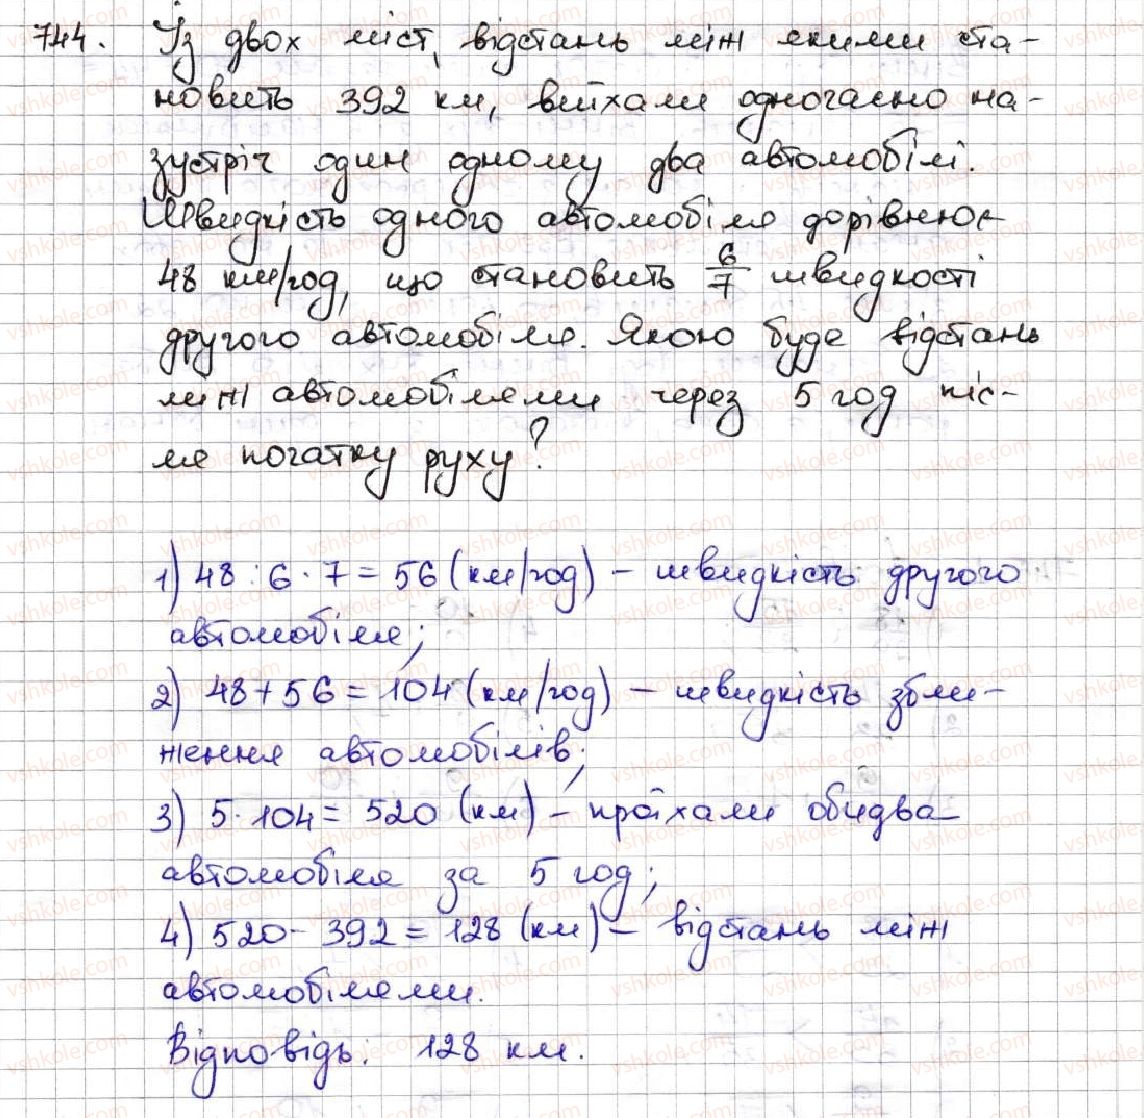 744. Із двох міст, відстань між якими ста-
новить 392 км, виїхали одночасно на-
зустріч один одному два автомобілі.
Швидкість одного автомобіля дорівнює
48 км/год, що становить 6/7 швидкості
другого автомобіля. Якою буде відстань
між автомобілями через 5 год піс-
ля початку руху?
1) 48 : 6 · 7 = 56 (км/год) – швидкість другого
автомобіля;
2) 48 + 56 = 104 (км/год) – швидкість збли-
ження автомобілів;
3) 5 · 104 = 520 (км) – проїхали обидва
автомобіля за 5 год;
4) 520 – 392 = 128 (км) – відстань між
автомобілями.
Відповідь: 128 км.